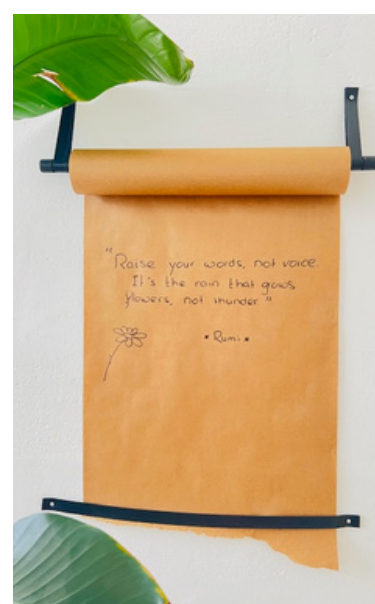 "Raise your words, not voice.
It's the rain that grows
flowers, not thunder"
× Rumi ×